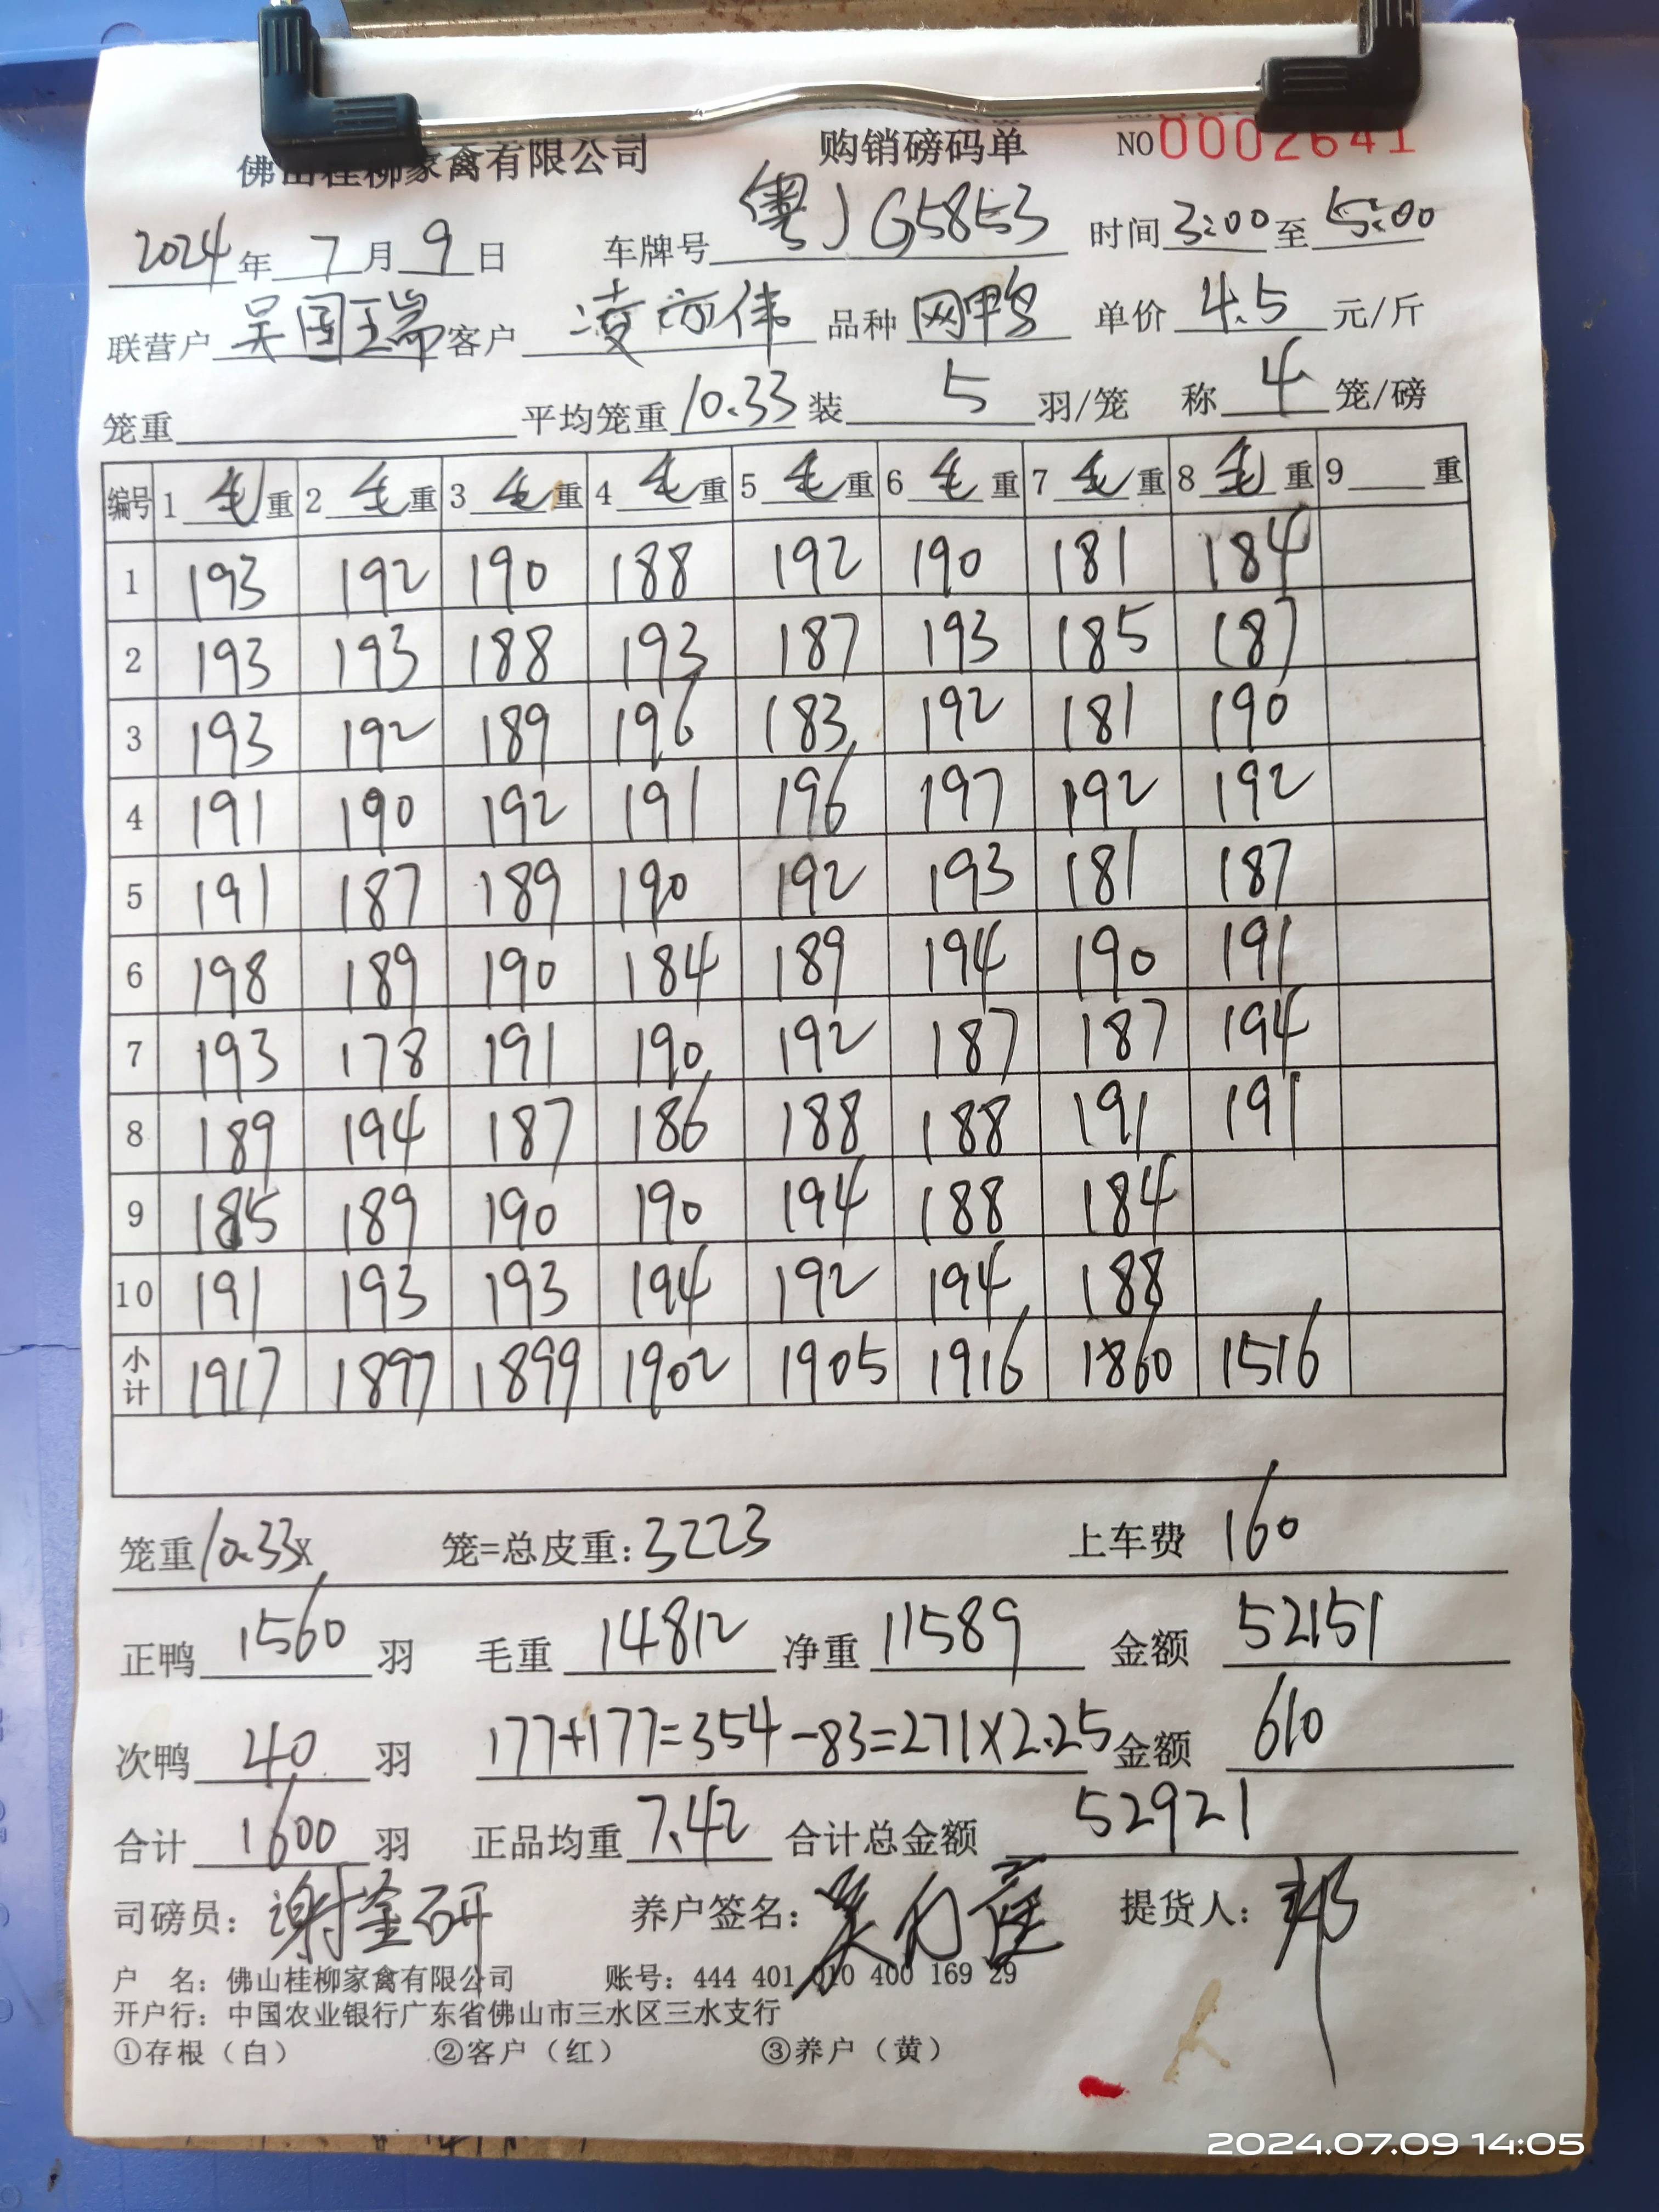 佛山桂柳家禽有限公司 购销磅码单 NO 0002641
2024年 7月 9日 车牌号 粤J G5853 时间 3:00 至 5:00
联营户 吴国瑞 客户 凌 伟 品种 网鸭 单价 4.5 元/斤
笼重 平均笼重 10.33 装 5 羽/笼 称 4 笼/磅
编号 1 毛 重 2 毛 重 3 毛 重 4 毛 重 5 毛 重 6 毛 重 7 毛 重 8 毛 重 9 重
1 193 192 190 188 192 190 181 184
2 193 193 188 193 187 193 185 187
3 193 192 189 196 183 192 181 190
4 191 190 192 191 196 197 192 192
5 191 187 189 190 192 193 181 187
6 198 189 190 184 189 194 190 191
7 193 178 191 190 192 187 187 194
8 189 194 187 186 188 188 191 191
9 185 189 190 190 194 188 184
10 191 193 193 194 192 194 188
小计 1917 1897 1899 1902 1905 1916 1860 1516
笼重 10.33x 笼=总皮重: 3223 上车费 160
正鸭 1560 羽 毛重 14812 净重 11589 金额 52151
次鸭 40 羽 177+177=354-83=271×2.25 金额 610
合计 1600 羽 正品均重 7.42 合计总金额 52921
司磅员: 谢金研 养户签名: 提货人: 邦
户 名: 佛山桂柳家禽有限公司 账号: 444 401 010 400 169 29
开户行: 中国农业银行广东省佛山市三水区三水支行
①存根（白） ②客户（红） ③养户（黄）
2024.07.09 14:05